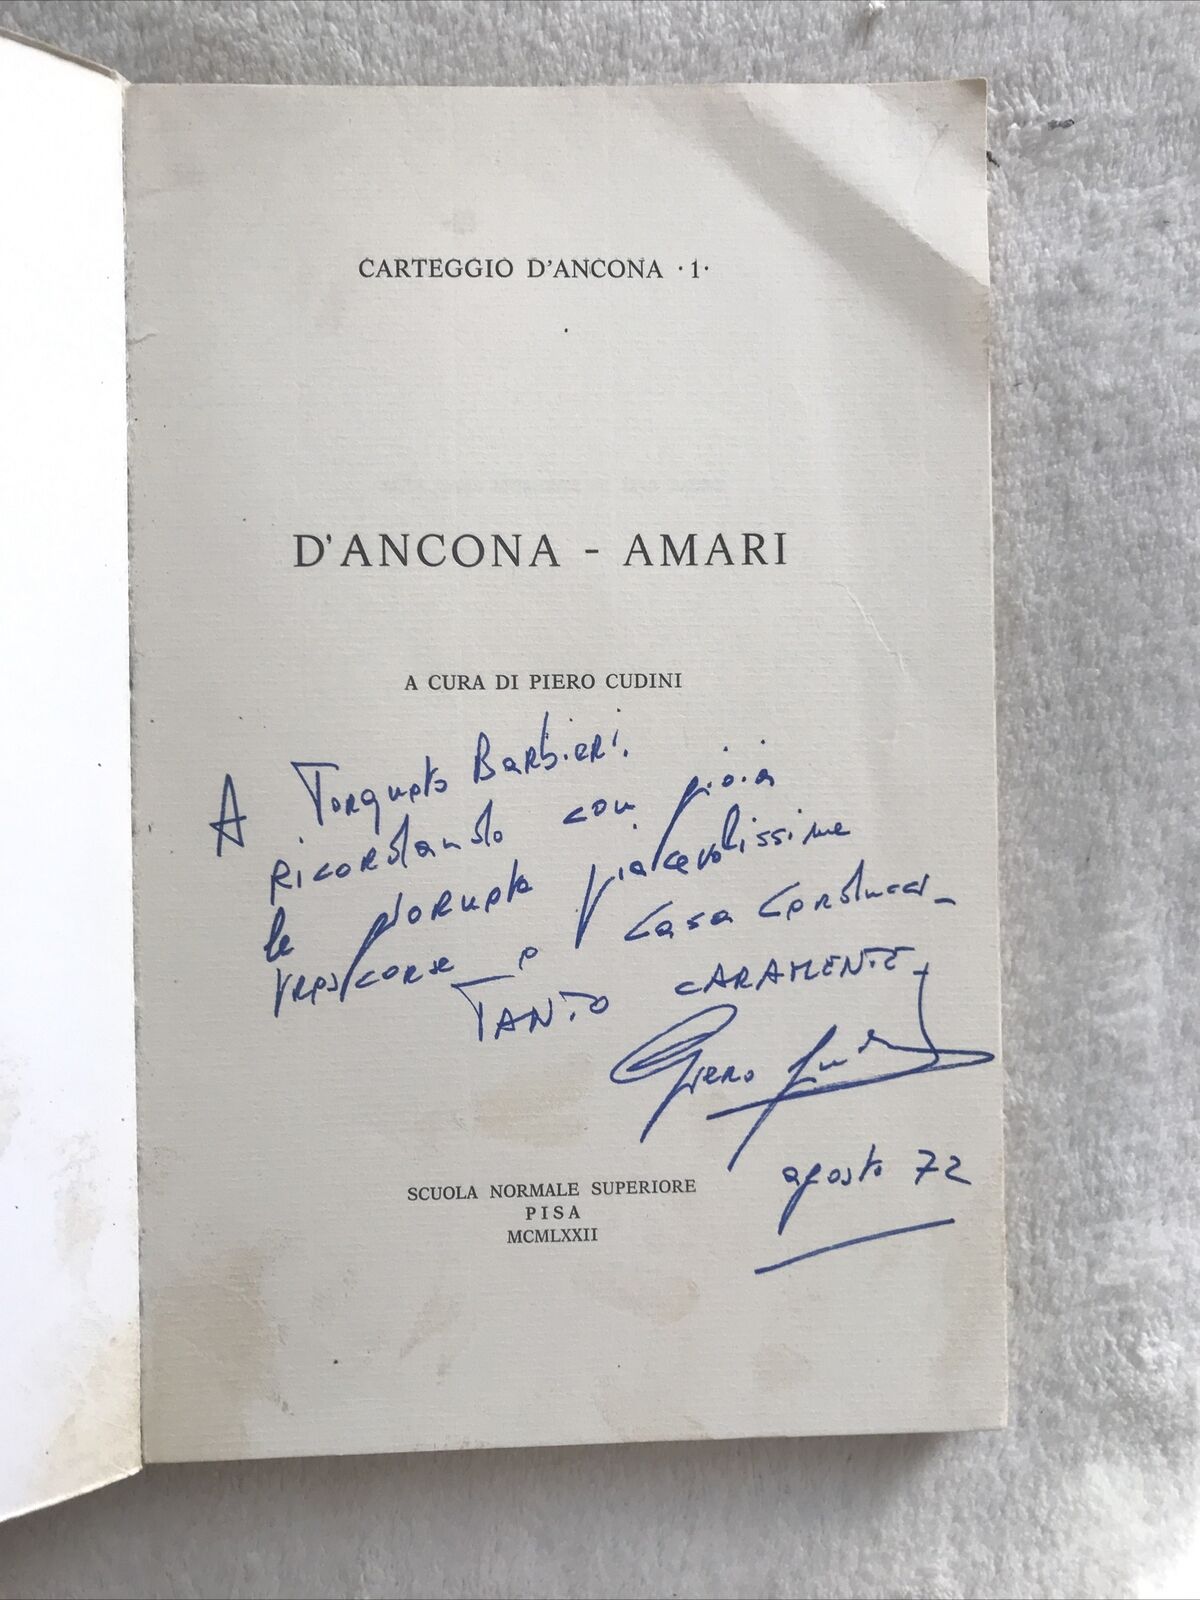 CARTEGGIO D'ANCONA · 1 ·
D'ANCONA - AMARI
A CURA DI PIERO CUDINI
A Torquato Barbieri,
ricordando con gioia
le piacevolissime
trascorse a Casa Carducci -
TANTO CARAMENTE
Piero Cudini
agosto 72
SCUOLA NORMALE SUPERIORE
PISA
MCMLXXII